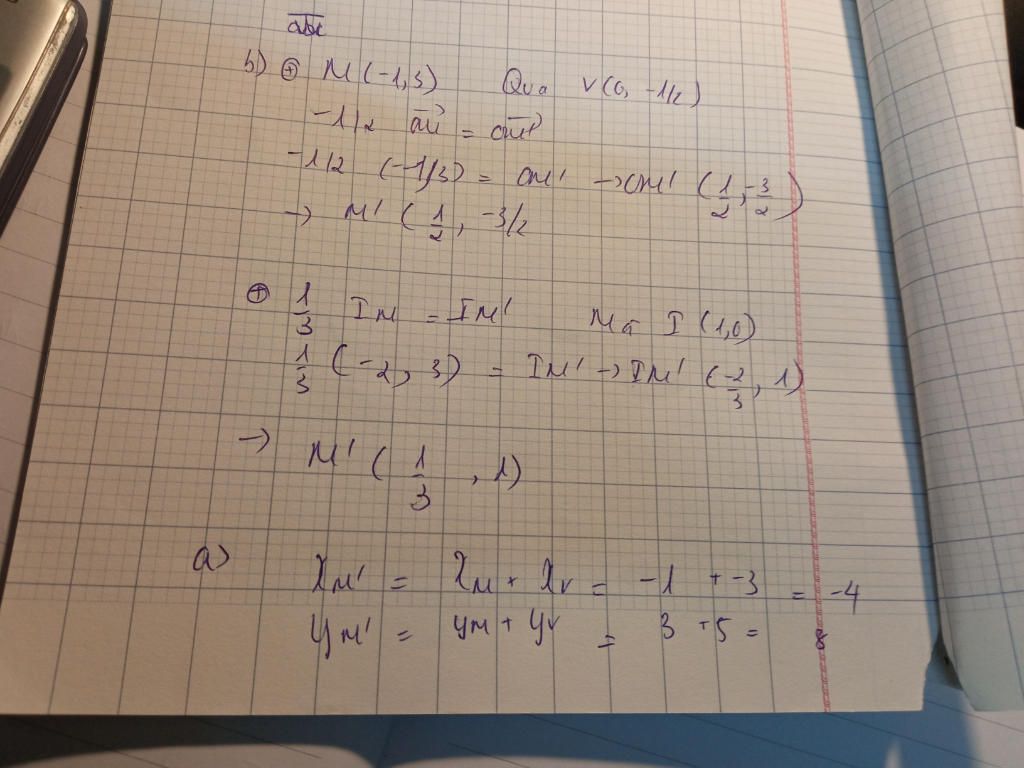 abc
b) ⊕ M (-1,3) Qua V(0, -1/2)
-1/2 OM = OM'
-1/2 (-1,3) = OM' → OM' (1/2, -3/2)
→ M' (1/2, -3/2
⊕ 1/3 IM = IM' Mà I (1,0)
1/3 (-2, 3) = IM' → IM' (-2/3, 1)
→ M' (1/3, 1)
a) XM' = XM + XV = -1 + -3 = -4
yM' = yM + yV = 3 + 5 = 8